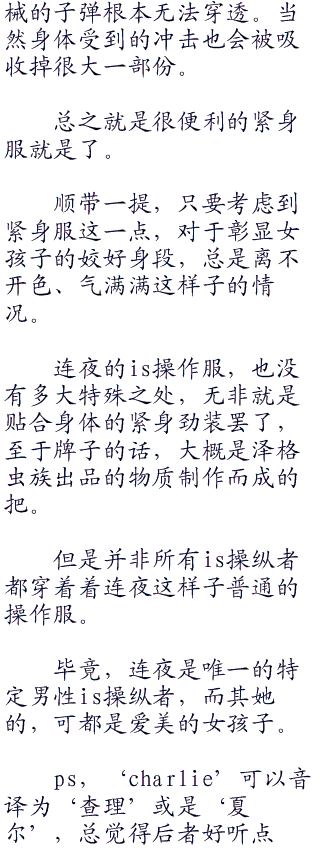 械的子弹根本无法穿透。当
然身体受到的冲击也会被吸
收掉很大一部份。
总之就是很便利的紧身
服就是了。
顺带一提，只要考虑到
紧身服这一点，对于彰显女
孩子的姣好身段，总是离不
开色、气满满这样子的情
况。
连夜的is操作服，也没
有多大特殊之处，无非就是
贴合身体的紧身劲装罢了，
至于牌子的话，大概是泽格
虫族出品的物质制作而成的
把。
但是并非所有is操纵者
都穿着着连夜这样子普通的
操作服。
毕竟，连夜是唯一的特
定男性is操纵者，而其她
的，可都是爱美的女孩子。
ps，‘charlie’可以音
译为‘查理’或是‘夏
尔’，总觉得后者好听点